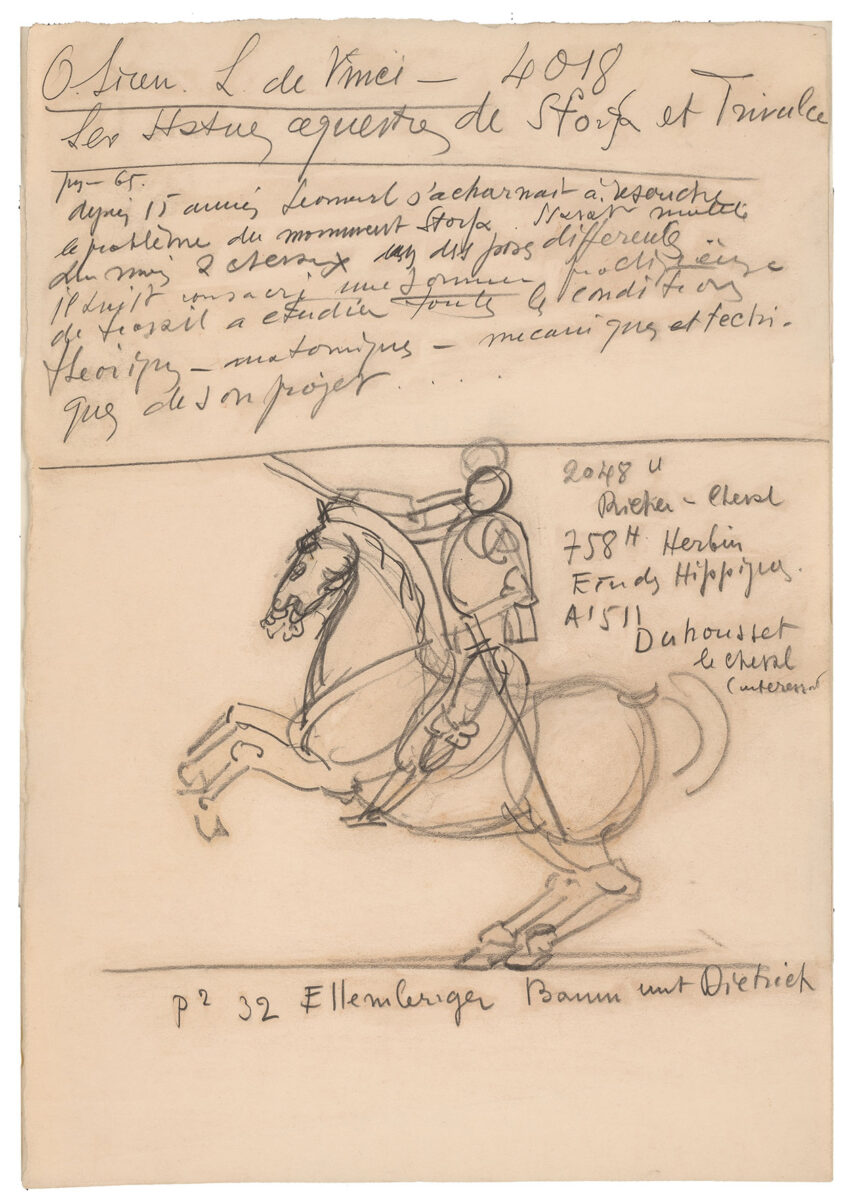 O. Siren. L. de Vinci — 4018
Les Statues equestres de Sforza et Trivulce
pag — 65.
depuis 15 années Leonard s'acharnait à resoudre
le problème du monument Sforza.
du moins 2 chevaux dans des poses differentes
il avait consacré une somme prodigieuse
de travail a etudier toutes les conditions
theoriques — anatomiques — mecaniques et techni-
ques de son projet . . . .
2048 u
Richer — Cheval
758 H Herbin
Etudes Hippiques.
A1511
Duhousset
le cheval
(interessant
p2 32 Ellemberger Baum unt Dietrich